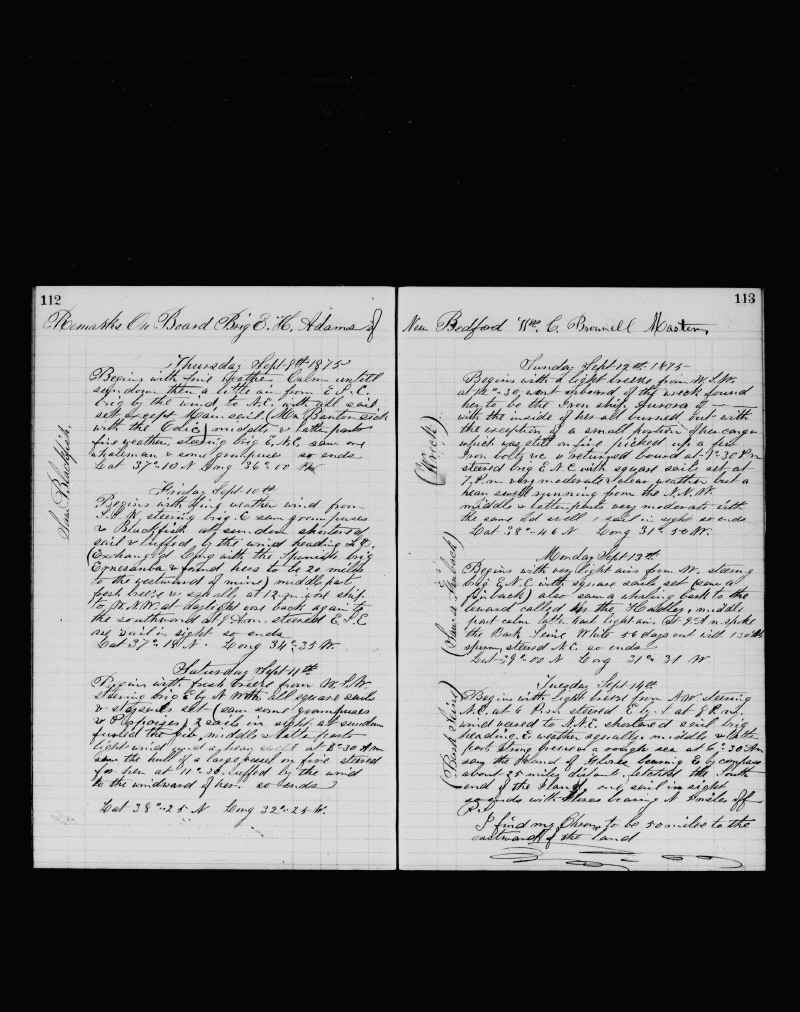 112
Remarks On Board Brig E. H. Adams of
Thursday Sept 9th 1875
Begins with fine weather Calm untill
sundown then a little air from E.S.E.
brig by the wind to N.E. with all sail
set except Main sail (Mr Benton sick
with the Colic) middle & latter parts
fine weather, steering brig E.N.E. saw one
whaleman & some grampuses so ends
Lat 37°.10 N Long 36°.00 W
Saw Blackfish.
Friday Sept 10th
Begins with fine weather wind from
S.S.W. steering brig E saw grampuses
& Blackfish at sundown shortened
sail & luffed by the wind heading S.E.
Exchanged Long with the Spanish brig
& found hers to be 20 miles
to the westward of mine) middle part
fresh breeze & squally at 12 wore ship
to W.N.W. at daylight wore back again to
the southward at 7 Am. steered E.S.E
one sail in sight so ends
Lat 37°.15 N. Long 34°.35 W.
Saturday Sept 11th
Begins with fresh breeze from W.S.W.
steering brig E by N with all square sails
& staysails set (saw some grampuses
& Porpoises) 2 sails in sight at sundown
furled the middle & latter parts
light wind and a heavy swell at 8°.30 Am
saw the hull of a large vessel on fire steered
for her at 11°.30 luffed by the wind
to the windward of her. so ends
Lat 38°.25 N Long 32°.25 W.
113
New Bedford Wm. C. Brownell Master,
Sunday Sept 12th 1875
Begins with a light breeze from W.S.W.
at 12°.30 went onboard of the wreck found
her to be the Iron ship Aurora of
with the inside of her all burned out with
the exception of a small portion of her cargo
which was still on fire picked up a few
Iron bolts &c & returned board at 1°.30 Pm
steered brig E.N.E with square sails set at
7 P.m very moderate & clear weather but a
heavy swell running from the N.N.W.
middle & latter parts very moderate with
the same bad swell 1 sail in sight so ends
Lat 38°.46 N Long 31°.50 W.
(Wreck)
Monday Sept 13th
Begins with very light airs from W. steering
brig E.N.E. with square sails set (saw a
finback) also saw a whaling bark to the
leward called by the Hadley, middle
part calm latter part light air. at 7 A m spoke
the Bark Sea White 56 days out with 130
sperm, steered N.E. so ends
Lat 39°.00 N Long 31°.31 W
(Saw a Finback)
Tuesday Sept 14th
Begins with light breeze from N.W. steering
N.E. at 6 P.m. steered E by S at 8 P.m.
wind veered to N.N.E. shortened sail brig
heading E weather squally. middle & latter
part strong breeze & a rough sea at 6°.30 Am
saw the Island of Flores bearing E by compass
about 25 miles distant. fetched the South
end of the Island, one sail in sight
so ends with Flores bearing N miles off
I find my Chron to be 50 miles to the
eastward of the land
(Bark Seine)